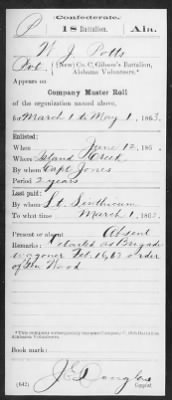 Confederate.
P 18 Battalion. Ala.
W. J. Potts
Pvt., (New) Co. C, Gibson's Battalion,
Alabama Volunteers.*
Appears on
Company Muster Roll
of the organization named above,
for March 1 to May 1, 1863.
Enlisted:
When June 12, 186
Where Island Creek
By whom Capt. Jones
Period 2 years
Last paid:
By whom Lt. Linthicum
To what time March 1, 186
Present or absent Absent
Remarks: Detailed as Brigade
wagoner Feb. 16, 63 order
of Gen Wood
*This company
Alabama Volunteers.
Book mark:
J. E. Douglass
(642) Copyist.